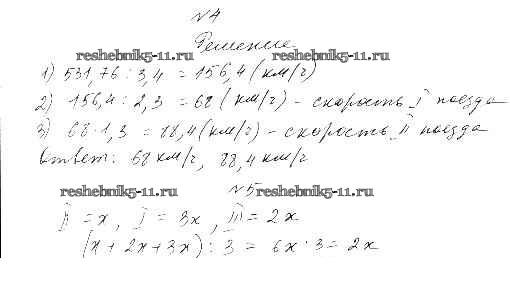 №4
Решение
reshebnik5-11.ru reshebnik5-11.ru
1) 531,76 : 3,4 = 156,4 (км/ч)
2) 156,4 : 2,3 = 68 (км/ч) - скорость I поезда
3) 68·1,3 = 88,4 (км/ч) - скорость II поезда
Ответ: 68 км/ч, 88,4 км/ч
reshebnik5-11.ru №5 reshebnik5-11.ru
II = x, I = 3x, III = 2x
(x + 2x + 3x) : 3 = 6x : 3 = 2x